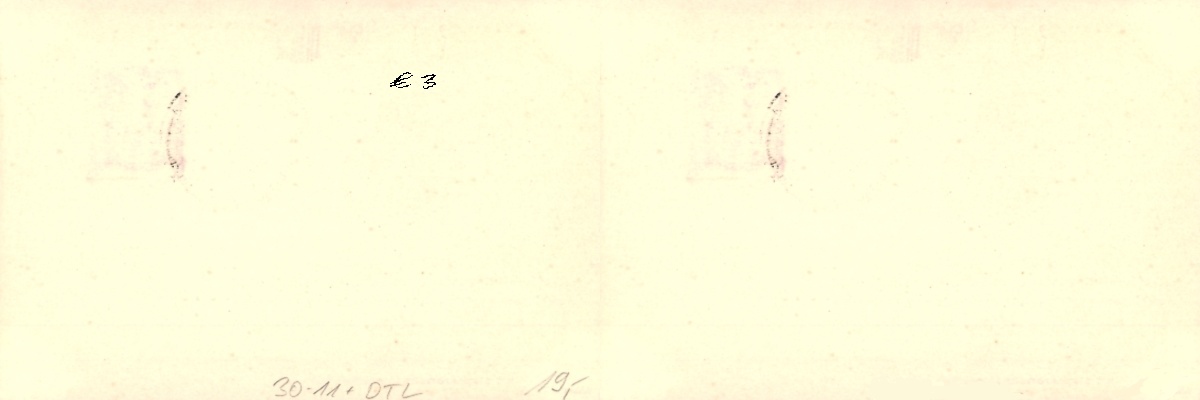 € 3
30-11+ DTL
19,-